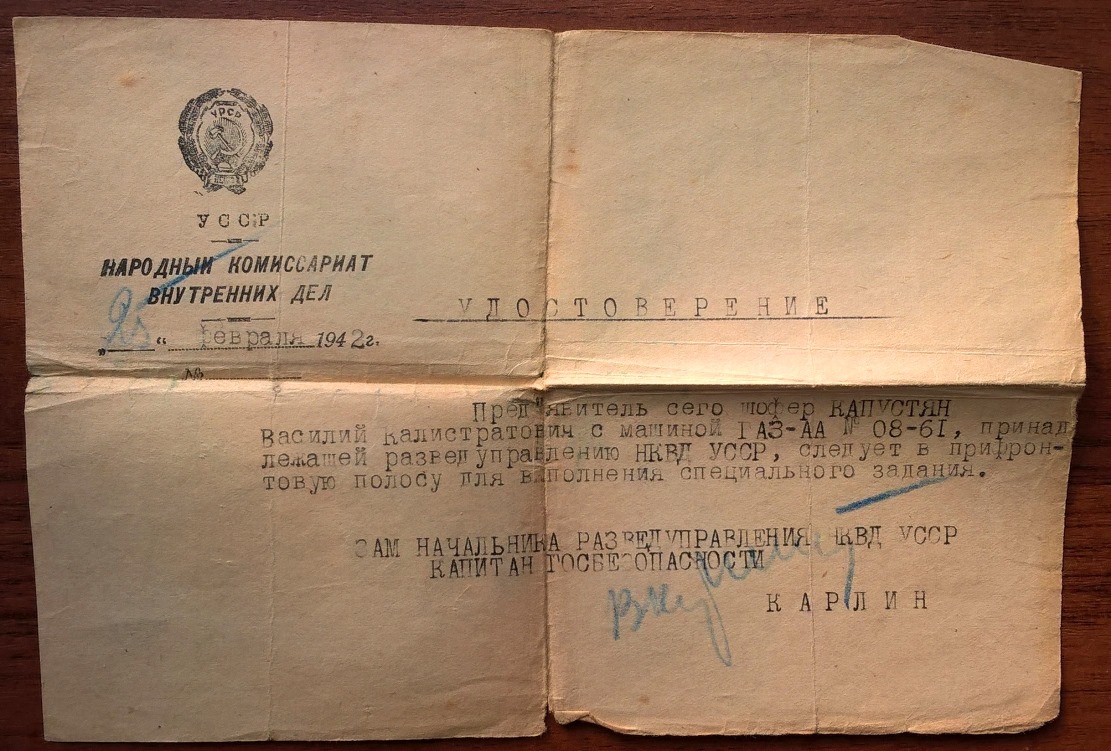 УРСР
УССР
НАРОДНЫЙ КОМИССАРИАТ
ВНУТРЕННИХ ДЕЛ
„25“ февраля 1942г.
№
УДОСТОВЕРЕНИЕ
Пред"явитель сего шофер КАПУСТЯН
Василий Калистратович с машиной ГАЗ-АА № 08-61, принад
лежащей разведуправлению НКВД УССР, следует в прифрон-
товую полосу для выполнения специального задания.
ЗАМ НАЧАЛЬНИКА РАЗВЕДУПРАВЛЕНИЯ НКВД УССР
КАПИТАН ГОСБЕЗОПАСНОСТИ
КАРЛИН